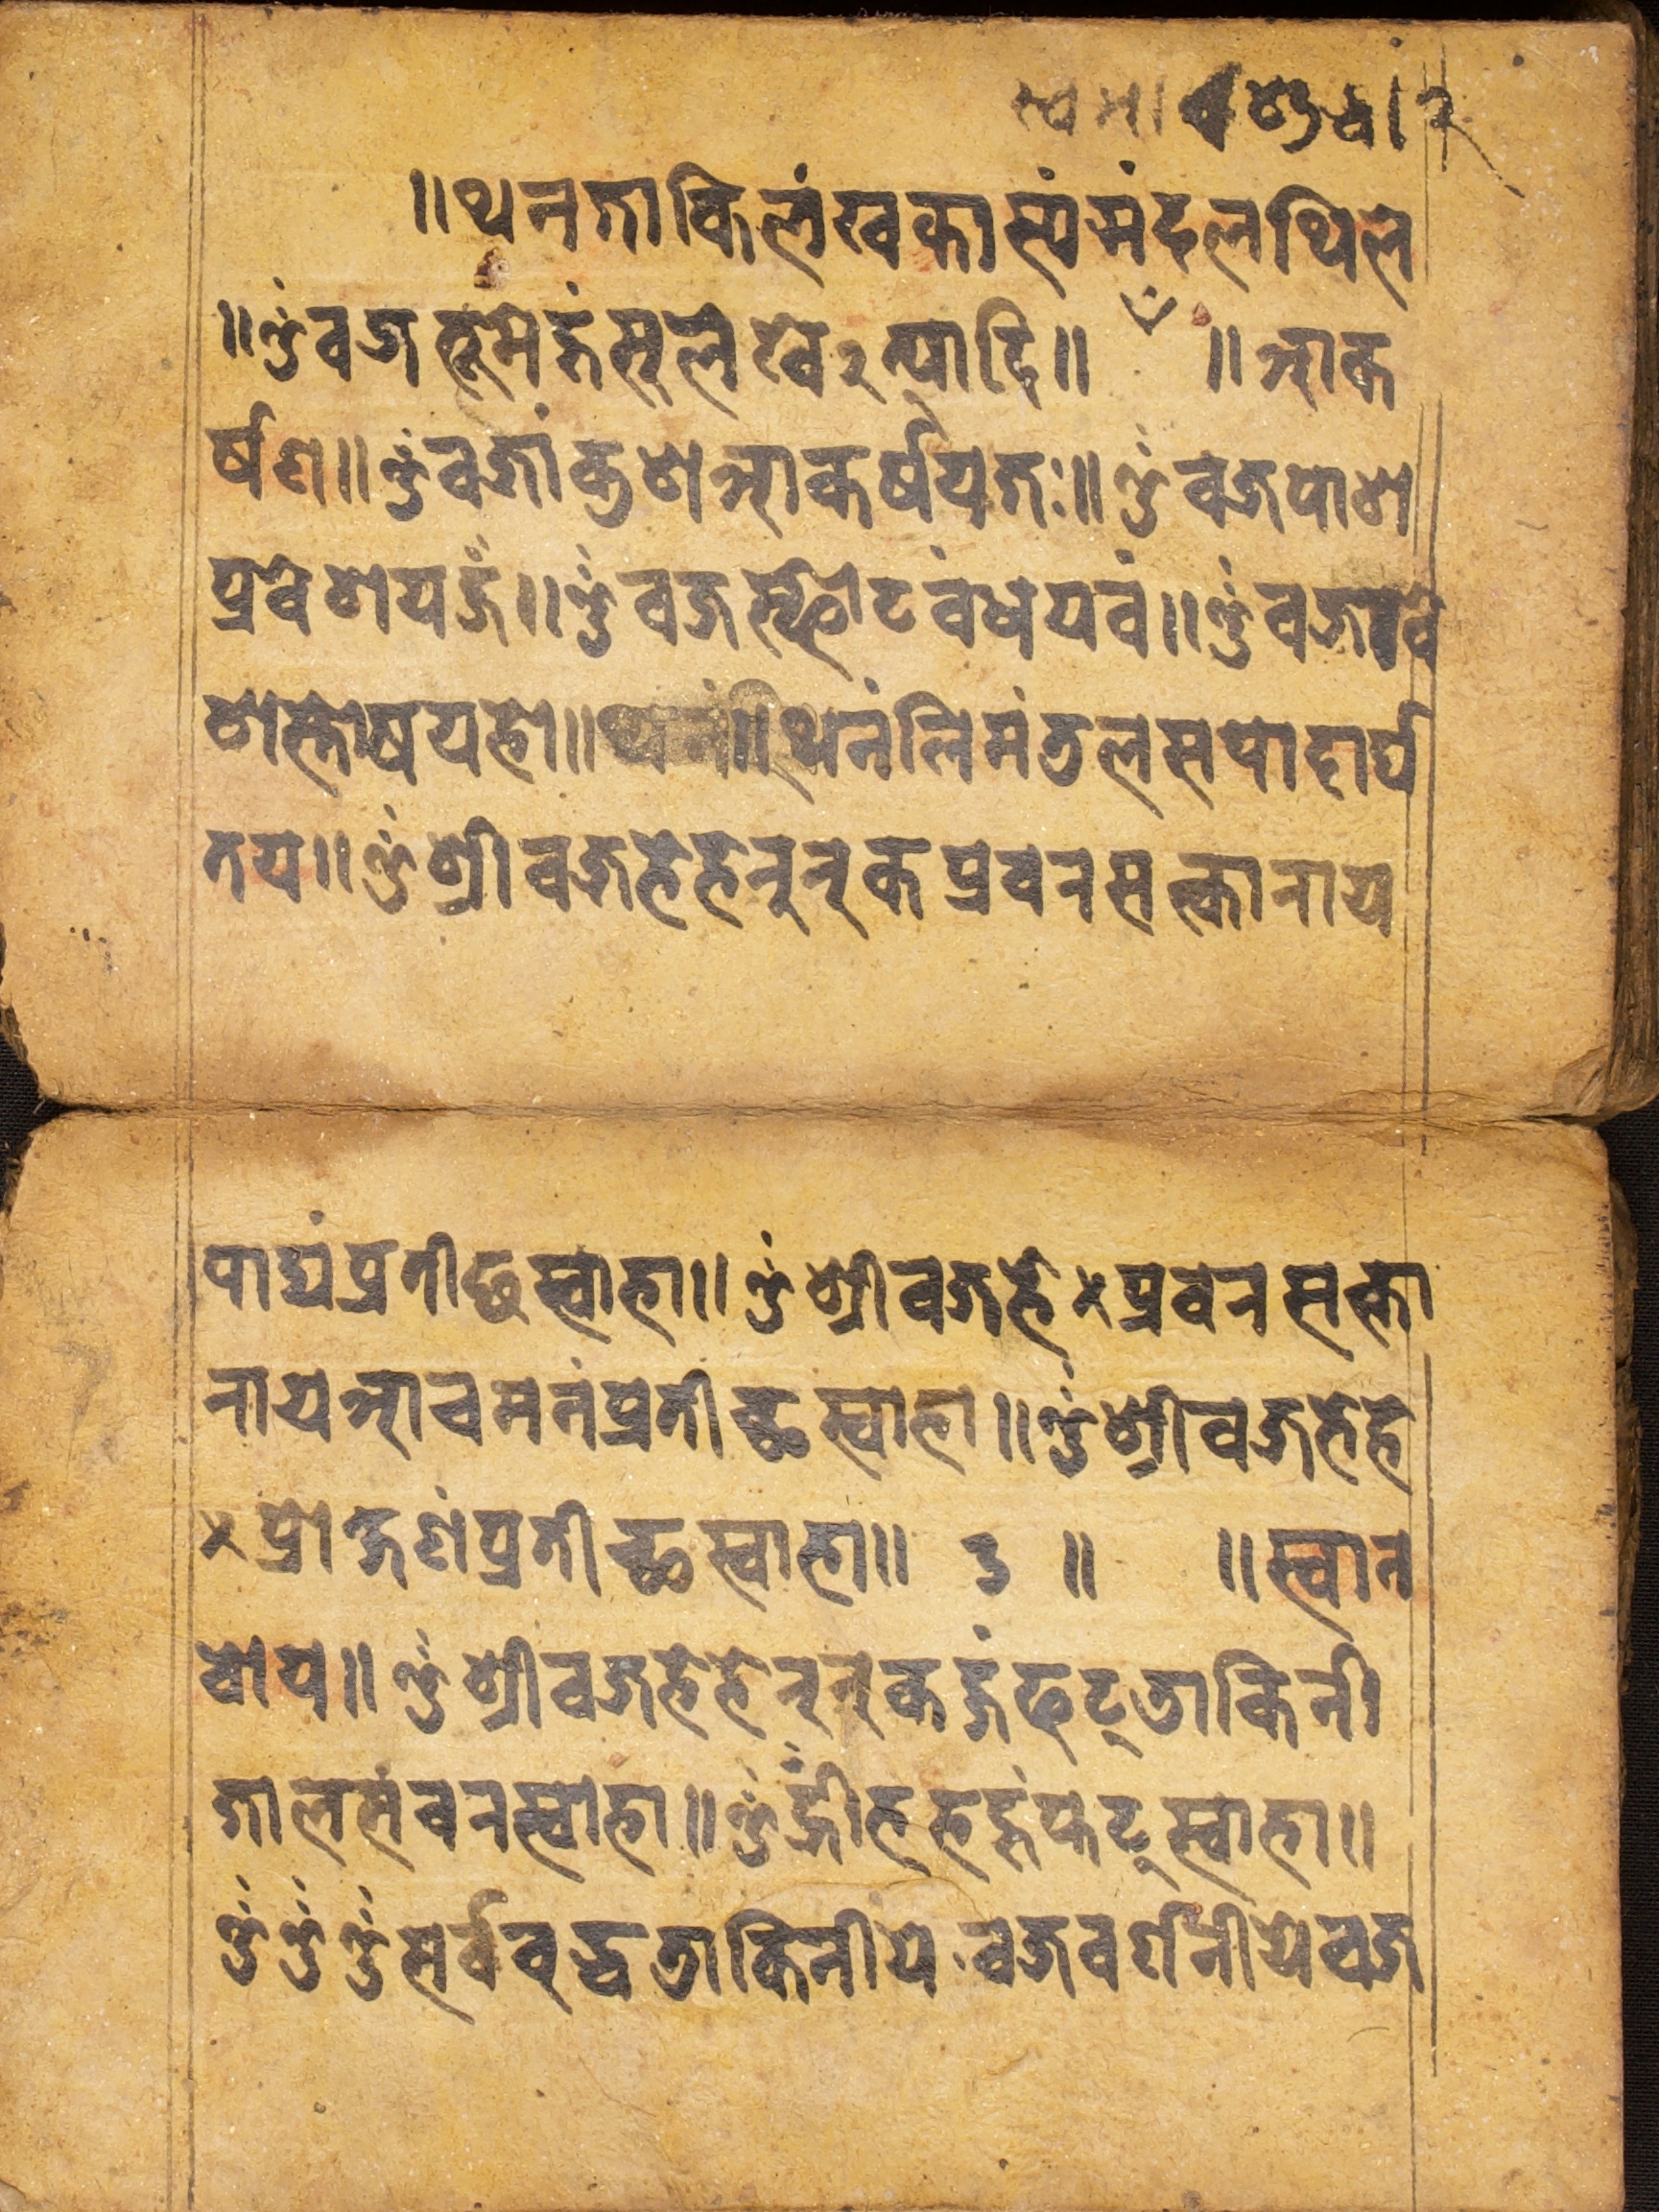 ॥ थनजाकिलंखकास्यंमंदलथिले
॥ ॐ वज्रभूमेहूंसूलेखे२त्यादि ॥ ॥ आक
र्षण ॥ ॐ वज्रांकुशआकर्षयजः ॥ ॐ वज्रपाश
प्रवेशयहूँ ॥ ॐ वज्रस्फोटबंधयवं ॥ ॐ वज्रावे
शस्तोषयहो ॥ थनंलिमंतुलसपादार्घ
तय ॥ ॐ श्रीवज्रहेहेनूनूकप्रवनसत्कानाय
पाद्यंप्रतीछस्वाहा ॥ ॐ श्रीवज्रहे×प्रवनसत्का
नायआचमनंप्रतीच्छस्वाहा ॥ ॐ श्रीवज्रहेहे
×प्रोक्षणंप्रतीच्छस्वाहा ॥ ३ ॥ ॥ स्वान
बोय ॥ ॐ श्रीवज्रहेहेनूनूकहूंफट्डाकिनी
जालसंवनस्वाहा ॥ ॐ ह्रींहहहूंफट्स्वाहा ॥
ॐ ॐ ॐ सर्वबुद्धडाकिनीयेवज्रवर्णनीयेवज्र